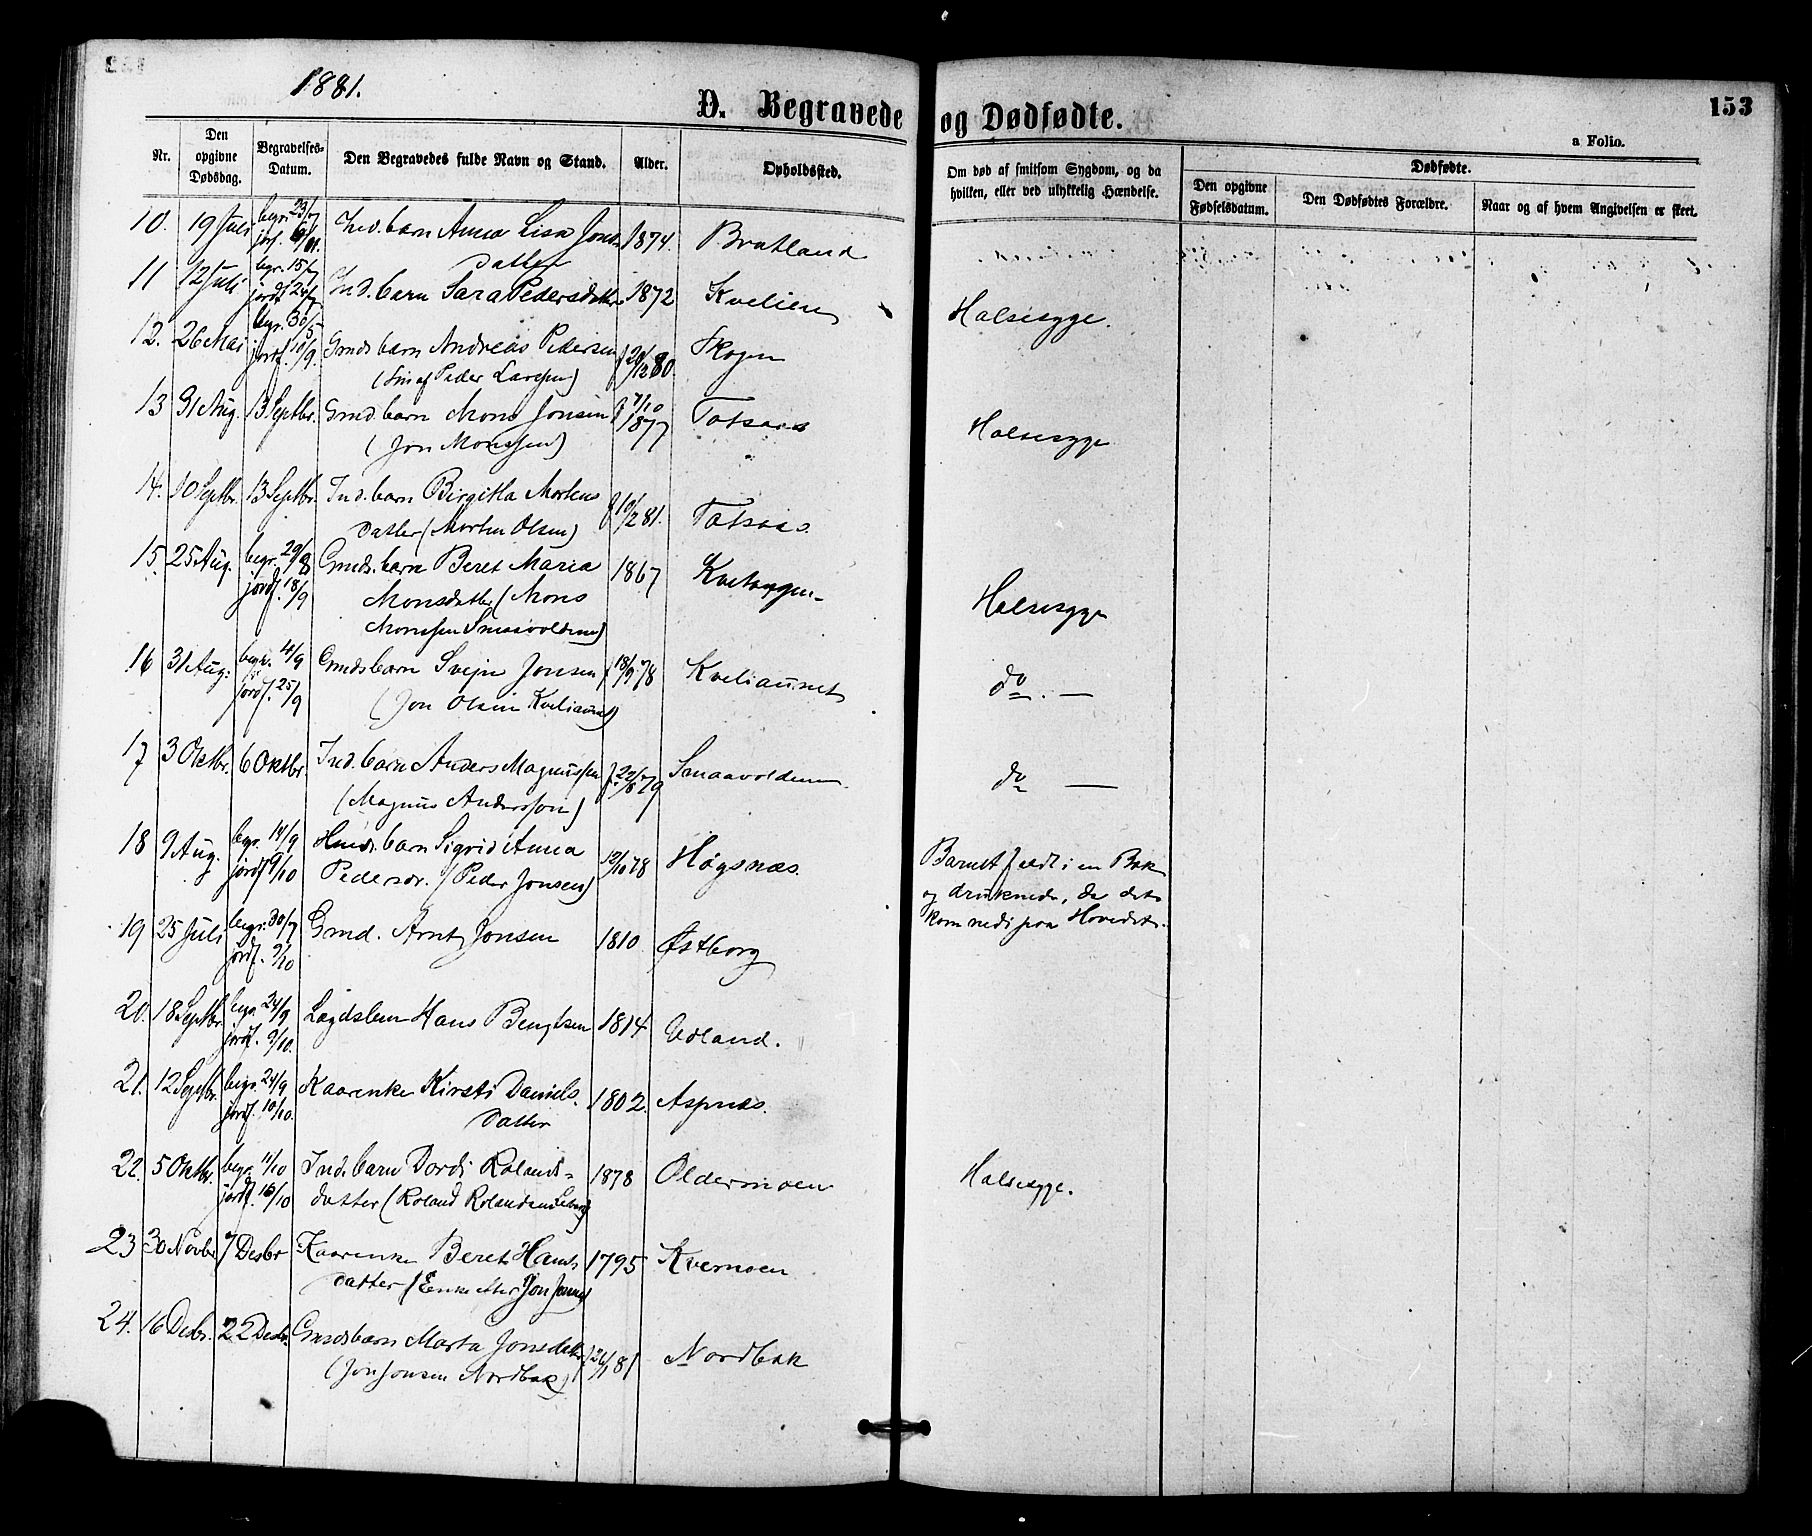 1881.
D. Begravede og Dødfødte.
153
a Folio.
Nr.
Den opgivne Dødsdag.
Begravelses-Datum.
Den Begravedes fulde Navn og Stand.
Alder.
Opholdssted.
Om død af smitsom Sygdom, og da hvilken, eller ved ulykkelig Hændelse.
Dødfødte.
Den opgivne Fødselsdatum.
Den Dødfødtes Forældre.
Naar og af hvem Angivelsen er skeet.
10. 19 Juli begr. 23/7 Ind. barn Anna Lisa Jons- 1874. Bratland
datter
11 12 Juli begr. 15/7 Ind. barn Sara Pedersdatter 1872 Kvelien Halsesyge.
jordf. 24/7
12. 26 Mai begr. 30/5 Gmds barn Andreas Pedersen f 20/12 80. Skogen
jordf. 10/9. (Søn af Peder Larssen)
13 31 Aug. 13 Septbr. Gmd. barn Mons Jonsen f 7/10 1877 Totsaas Halsesyge
(Jon Monssen)
14. 10 Septbr. 13 Septbr. Ind. barn Birgitha Mortens f 10/2 81. Totsaas.
datter (Morten Olsen)
15. 25 Aug. begr. 29/8 Gmds. barn Beret Maria 1867 Halsesyge
jordf. 18/9 Monsdatter (Mons
Monssen Smaavolden)
16 31 Aug. begr. 4/9 Gmds barn Svejn Jonsen f 18/9 78 Kveliaunet do. —
jordf. 25/9 (Jon Olsen Kveliaunet)
17 3 Oktbr. 6 Oktbr. Ind. barn Anders Magnussen f. 22/8 79 Smaavolden do —
(Magnus Andersson)
18 9 Aug. begr. 14/9 barn Sigrid Anna 12/10 78 Høgsnæs. Barnet faldt i en Bæk
jordf 9/10 Pedersdr. (Peder Jonsen) og druknede, da det
kom nedi paa Hovedet.
19 25 Juli begr. 30/7 Gmd. Arnt Jonsen 1810. Østborg
jordf. 9/10
20. 18 Septbr. begr. 24/9 Lægdslem Hans Bengtsen 1814 Udland.
jordf. 9/10.
21. 12 Septbr. begr. 24/9 Kaarenke Kirsti Daniels. 1802. Aspnæs.
jordf. 10/10. datter
22. 5 Oktbr. begr. 11/10 Ind. barn Dordi Rolands- 1878 Oldermoen Halsesyge.
jordf. 16/10 datter (Roland Rolandsen)
23 30 Novbr 7 Desbr Kaarenke Beret Hans- 1795 Kvernoen
datter (Enke efter Jon Jonsen)
24. 16 Desbr. 22 Desbr. Gmdsbarn Marta Jonsdatter 81 Nordbæk
(Jon Jonsen Nordbæk)